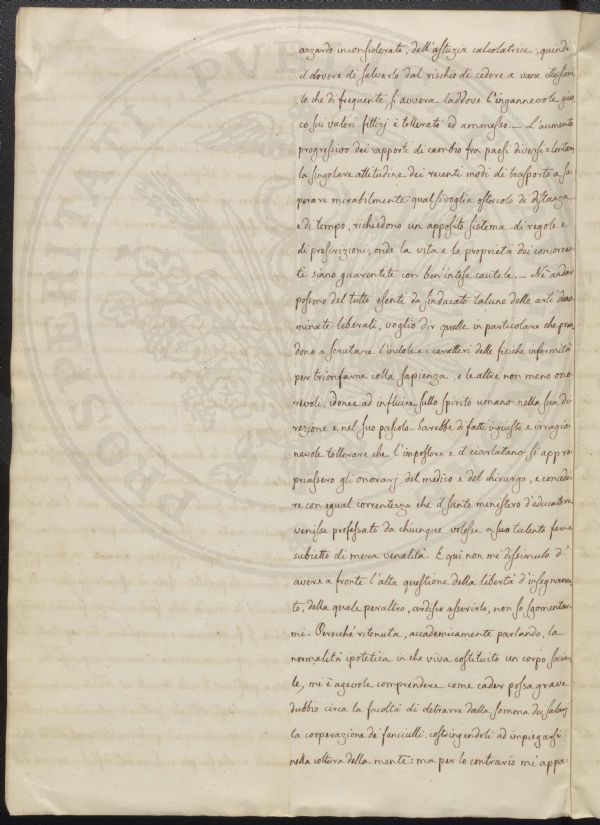 anzardo inconsiderato, dell'astuzia calcolatrice; quindi
il dovere di salvarlo dal rischio di cedere a vane illusioni,
lo che di frequente s'avvera laddove l'ingannevole giuo
co sui valori fittizj è tollerato ed ammesso. _ L'aumento
progressivo dei rapporti di cambio fra paesi diversi e lontani
la singolare attitudine dei recenti modi di trasporto a su-
perare mirabilmente qualsivoglia ostacolo di distanza
e di tempo, richiedono un apposito sistema di regole e
di prescrizioni, onde la vita e le proprietà dei concorren-
ti siano guarentite con ben'intese cautele. _ Nè andar
possono del tutto esenti da sindacato talune delle arti deno
minate liberali, voglio dir quelle in particolare che pren
dono a scrutare l'indole e i caratteri delle fisiche infermità
per trionfarne colla sapienza, e le altre non meno ono
revoli, idonee ad influire sullo spirito umano nella sua di
rezione e nel suo pascolo. _ Sarebbe di fatti ingiusto e irragio
nevole tollerare che l'impostore e il ciarlatano si appro
priassero gli onorarj del medico e del chirurgo, e concede
re con egual correntezza che il santo ministero d'educatore
venisse professato da chiunque volesse a suo talento farne
subietto di mera venalità. E qui non mi dissimulo d'
avere a fronte l'alta questione della libertà d'insegnamen
to, della quale peraltro, ardisco asserirlo, non so sgomentar
mi. Perocchè ritenuta, accademicamente parlando, la
normalità ipotetica in che viva costituito un corpo socia
le, mi è agevole comprendere come cader possa grave
dubbio circa la facoltà di detrarre dalla somma dei salarj
la cooperazione de' fanciulli, costringendoli ad impiegarsi
nella coltura della mente: ma per lo contrario mi appa-
PROSPERITATI PVBL